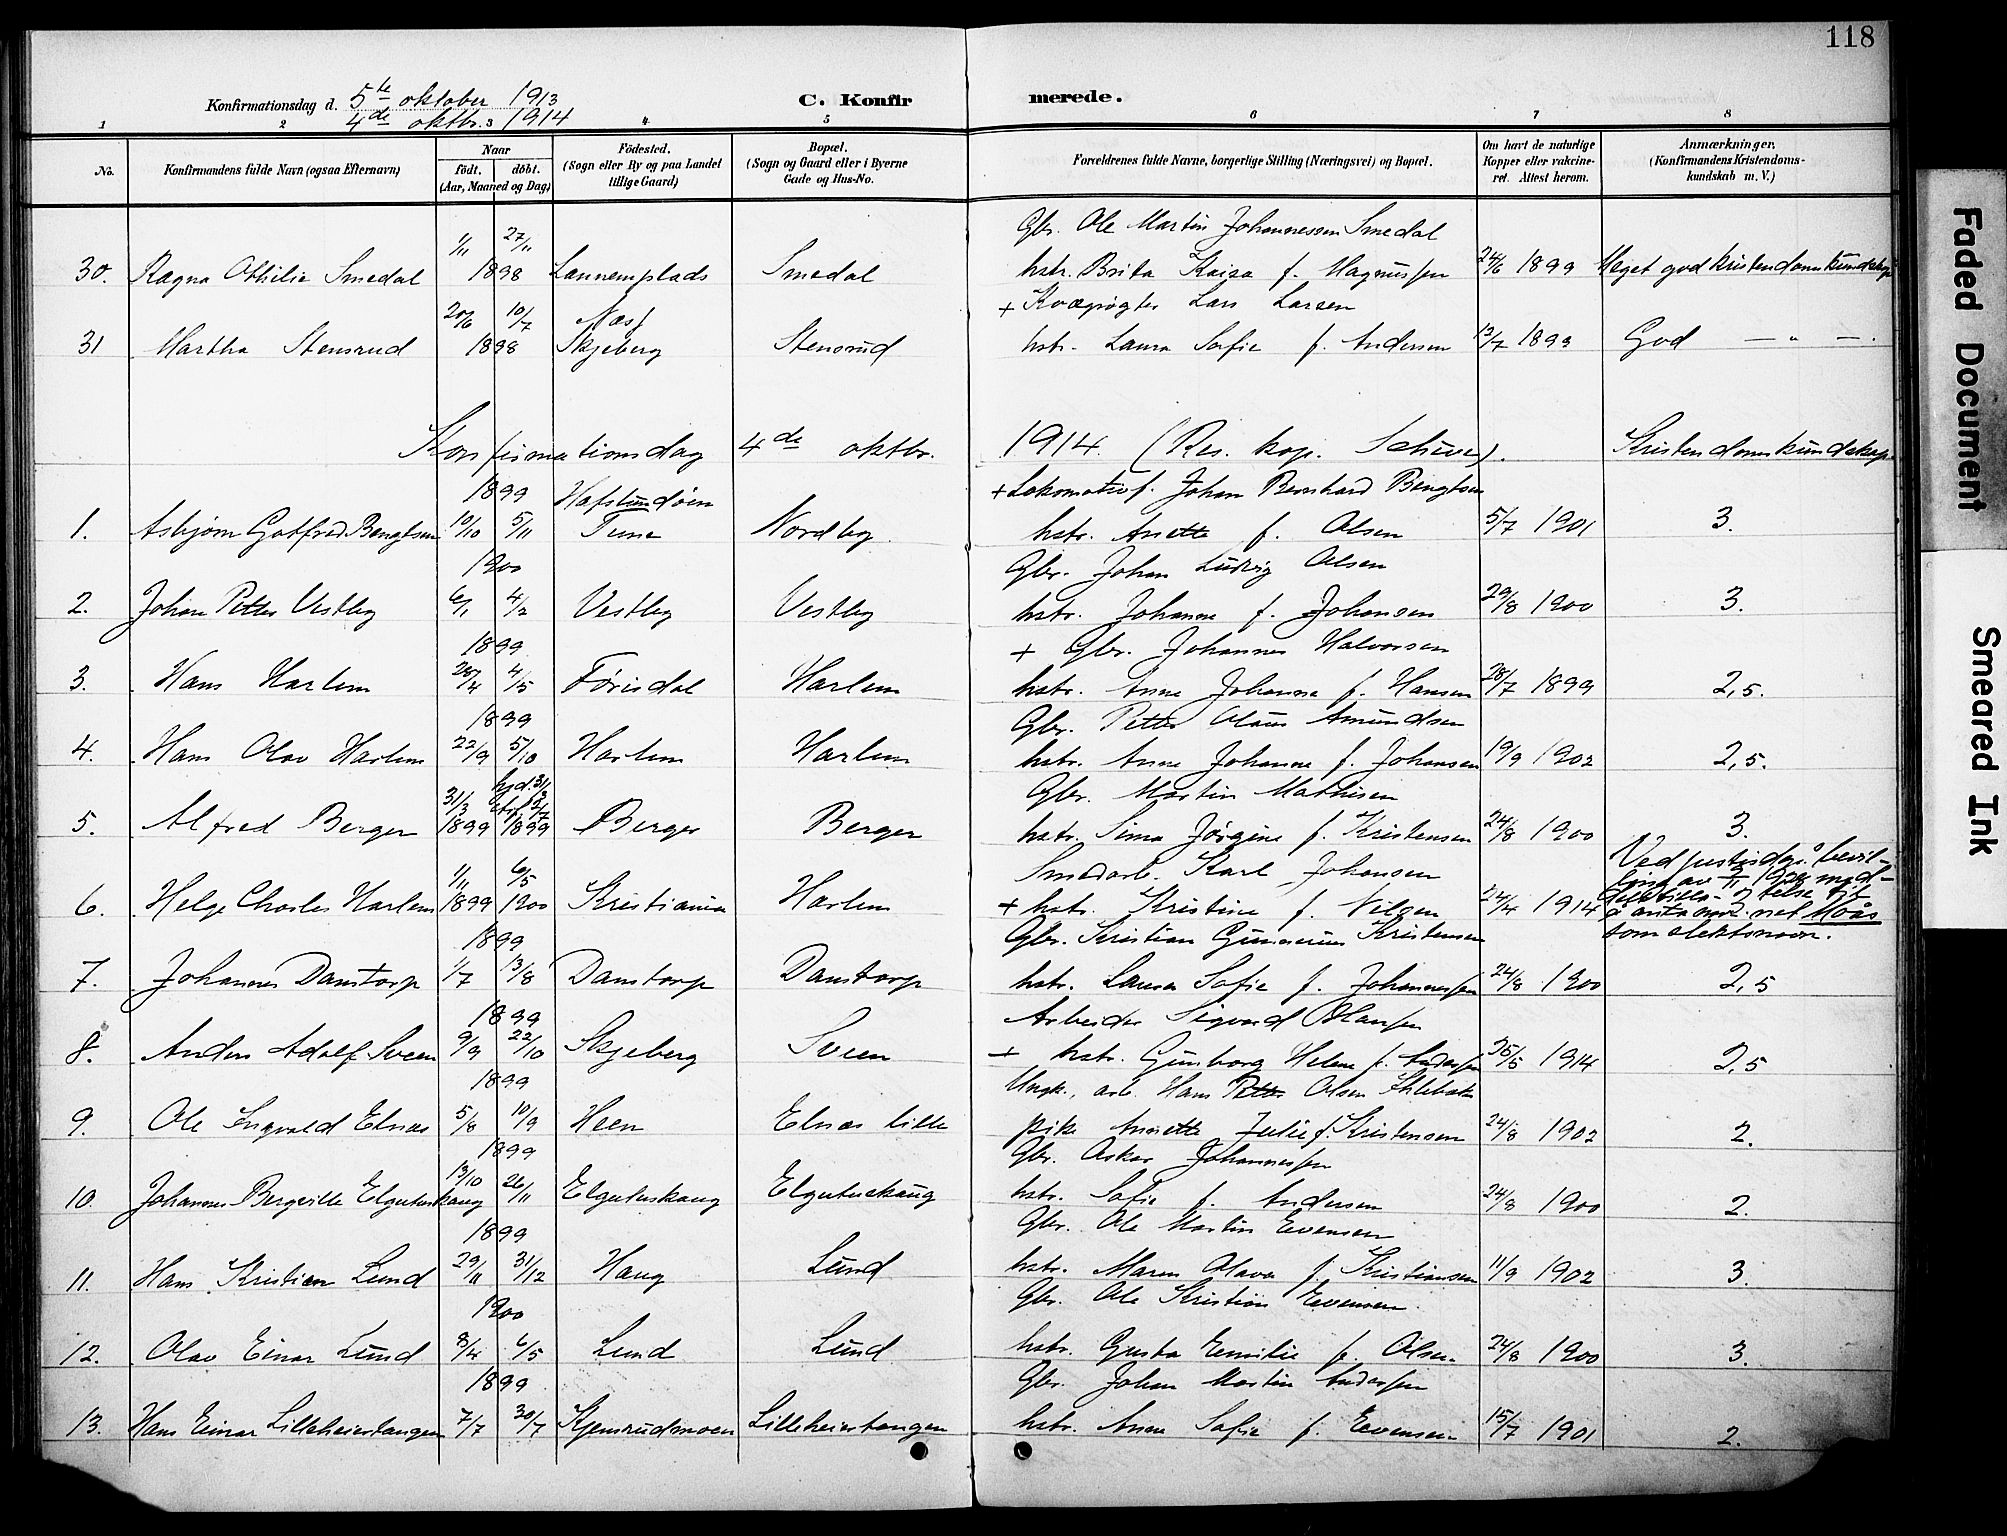 118
Konfirmationsdag d. 5te oktober 1913
4de oktbr. 1914
C. Konfirmerede.
1 2 3 4 5 6 7 8
No.
Konfirmandens fulde Navn (ogsaa Efternavn)
Naar
født. døbt.
(Aar, Maaned og Dag)
Fødested.
(Sogn eller By og paa Landet
tillige Gaard)
Bopæl.
(Sogn og Gaard eller i Byerne
Gade og Hus-No.
Forældrenes fulde Navne, borgerlige Stilling (Næringsvei) og Bopæl.
Om havt de naturlige
Kopper eller vakcine-
ret. Attest herom.
Anmærkninger.
(Konfirmandens Kristendoms-
kundskab m. V.)
Gbr. Ole Martin Johannessen Smedal
1/11 27/11
30. Ragna Othilie Smedal 1898 Lannemplads Smedal hstr. Brita Kaisa f. Magnussen 24/6 1899 Meget god kristendomskundskap
20/6 10/7 Næs + Kvægrøgter Lars Larsen
31 Martha Stensrud 1898 Skjeberg Stensrud hstr. Laura Sofie f. Andersen 13/7 1899 God — " —.
Konfirmationsdag 4de oktbr. 1914. (Res. kap. Schive). Kristendomskundskap.
1899 Hafslundsøen + Lokomotivf. Johan Bernhard Bengtsen
1. Asbjørn Gotfred Bengtsen 10/10 5/11 Tune Nordby hstr. Anette f. Olsen 5/7 1901 3.
1900 Gbr. Johan Ludvig Olsen
2. Johan Petter Vestby 6/1 4/2 Vestby Vestby hstr. Johanne f. Johansen 29/8 1900 3.
1899 + Gbr. Johannes Halvorsen
3. Hans Harlem 20/4 4/5 Førisdal Harlem hstr. Anne Johanna f. Hansen 28/7 1899 2,5.
1899 Gbr. Petter Olaus Amundsen
4. Hans Olav Harlem 22/9 5/10 Harlem Harlem hstr. Anne Johanne f. Johansen 19/9 1902 2,5.
31/3 hjd. 31/3 Gbr. Martin Mathisen
5. Alfred Berger 1899 1899 Berger Berger hstr. Sina Jørgine f. Kristensen 24/8 1900 3.
1/11 6/5 Smedarb. Karl Johansen Ved justisdep.s bevil-
6. Helge Charles Harlem 1899 1900 Kristiania Harlem + hstr. Kristine f. Nilsen 24/4 1914
å anta navnet Moås
som slektsnavn.
1899 Gbr. Kristian Gunnerius Kristensen
7. Johannes Damstorp 1/7 13/8 Damstorp Damstorp hstr. Laura Sofie f. Johannessen 24/8 1900 2,5
1899 Arbeider Sigvard Olausen
8. Anders Adolf Sveen 9/9 22/10 Skjeberg Sveen + hstr. Gunborg Helene f. Andersen 25/5 1914 2,5
1899 Ungk., arb. Hans Petter Olsen
9. Ole Ingvald Elnæs 5/8 10/9 Heen Elnæs lille pike Annette Julie f. Kristensen 24/8 1902 2.
1899 Gbr. Oskar Johannessen
10. Johannes Bergerlle Elgutuskaug 13/10 26/11 Elgutuskaug Elgutuskaug hstr. Sofie f. Andersen 24/8 1900 2.
1899 Gbr. Ole Martin Evensen
11. Hans Kristian Lund 29/11 31/12 Haug Lund hstr. Maren Olava f. Kristiansen 11/9 1902 3.
1900 Gbr. Ole Kristian Evensen
12. Olav Einar Lund 8/4 6/5 Lund Lund hstr. Gusta Emilie f. Olsen 24/8 1900 3.
1899 Gbr. Johan Martin Andersen
13. Hans Einar Lilleheiertangen 7/7 30/7 Kjensrudmoen Lilleheiertangen hstr. Anne Sofie f. Evensen 15/7 1901 2.
Faded Document
Smeared Ink